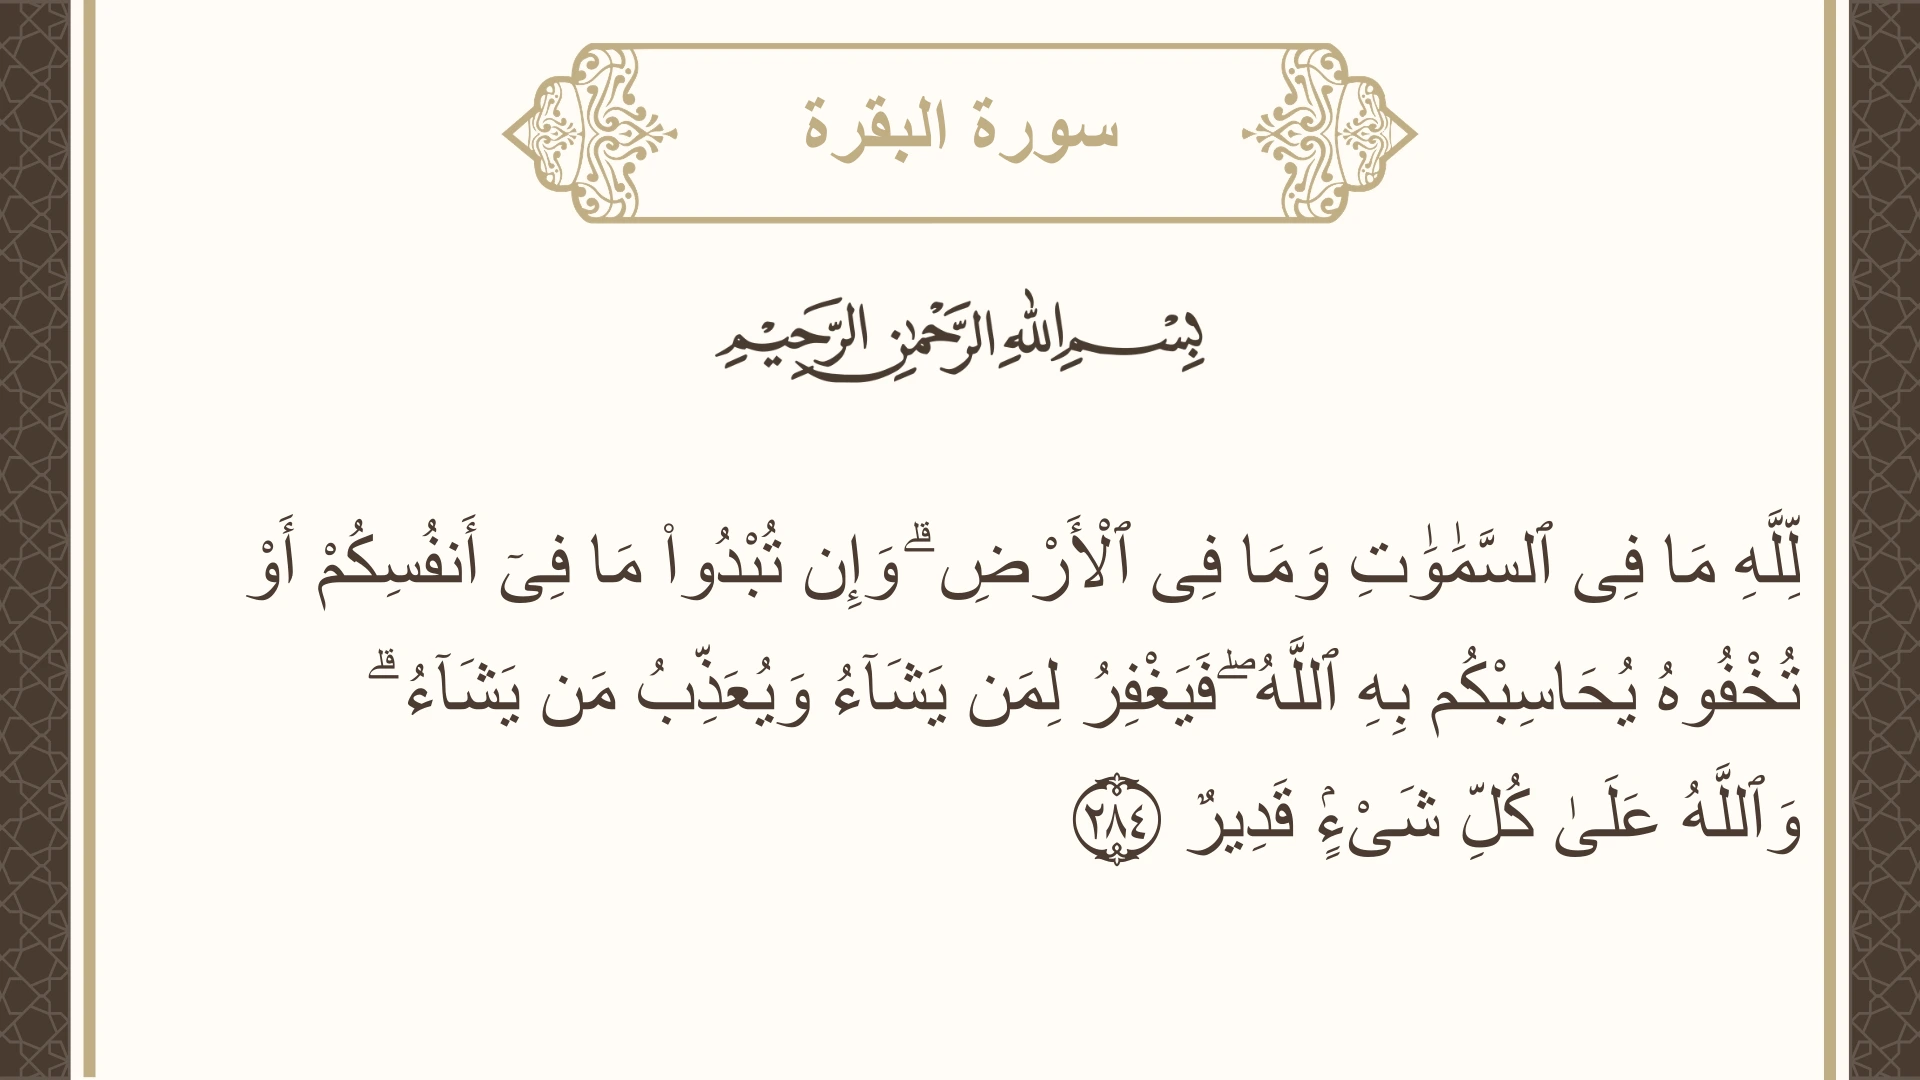 سورة البقرة
بِسْمِ اللهِ الرَّحْمٰنِ الرَّحِيْمِ
لِّلَّهِ مَا فِى ٱلسَّمَٰوَٰتِ وَمَا فِى ٱلْأَرْضِ ۗ وَإِن تُبْدُوا۟ مَا فِىٓ أَنفُسِكُمْ أَوْ
تُخْفُوهُ يُحَاسِبْكُم بِهِ ٱللَّهُ ۖ فَيَغْفِرُ لِمَن يَشَآءُ وَيُعَذِّبُ مَن يَشَآءُ ۗ
وَٱللَّهُ عَلَىٰ كُلِّ شَىْءٍۢ قَدِيرٌ ٢٨٤